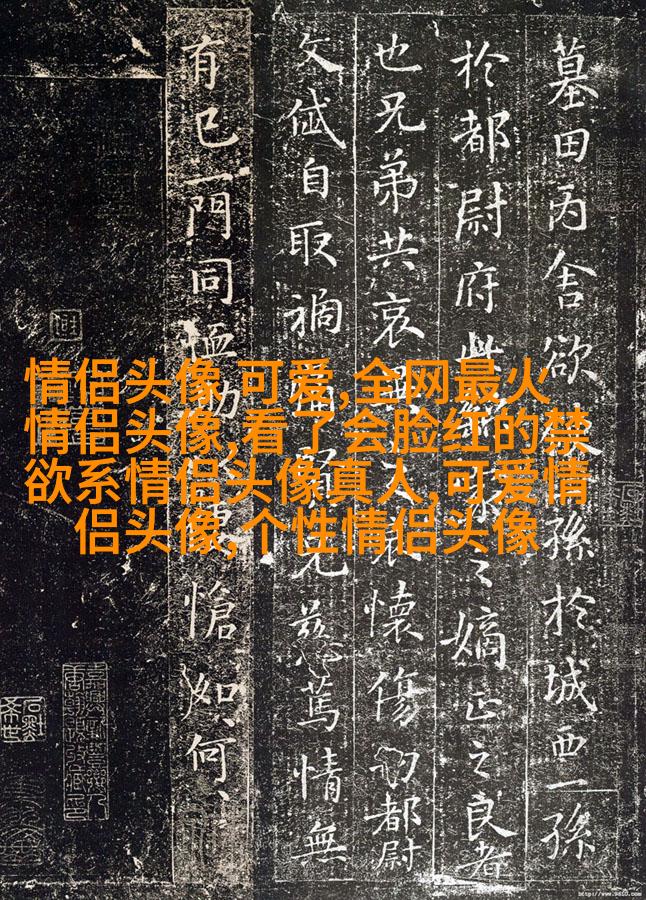 墓田丙舍欲孫於城西一孫
於都尉府此之嫡正之良者
也兄弟共哀懷傷切都尉
文岱自取禍兄慈篤情無
有已一門同恤助愴如何
情侣头像 可爱,全网最火
情侣头像,看了会脸红的禁
欲系情侣头像真人,可爱情
侣头像,个性情侣头像
http://www.9610.com